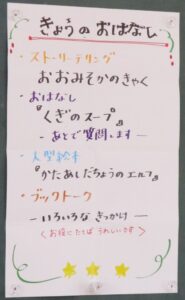 きょうのおはなし
・ストーリーテリング
おおみそかのきゃく
・おはなし
『くぎのスープ』
－あとで質問します－
・大型絵本
『かたあしだちょうのエルフ』
・ブックトーク
－いろいろなきっかけ－
＜お役にたてば うれしいです＞